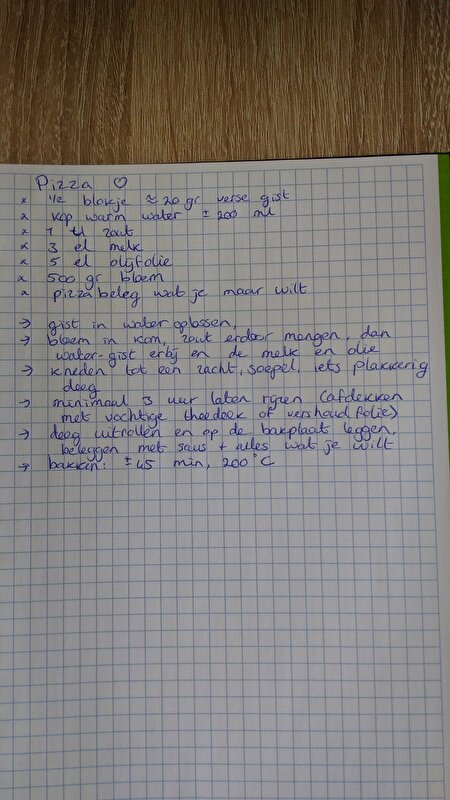 Pizza ♡
x 1/2 blokje ≈ 20 gr verse gist
x kop warm water ± 200 ml
x 1 tl zout
x 3 el melk
x 5 el olijfolie
x 500 gr bloem
x pizzabeleg wat je maar wilt
→ gist in water oplossen,
→ bloem in kom, zout erdoor mengen, dan
water-gist erbij en de melk en olie
→ kneden tot een zacht, soepel, iets plakkerig
deeg
→ minimaal 3 uur laten rijzen (afdekken
met vochtige theedoek of vershoud folie)
→ deeg uitrollen en op de bakplaat leggen,
beleggen met saus + alles wat je wilt
→ bakken: ± 45 min, 200°C